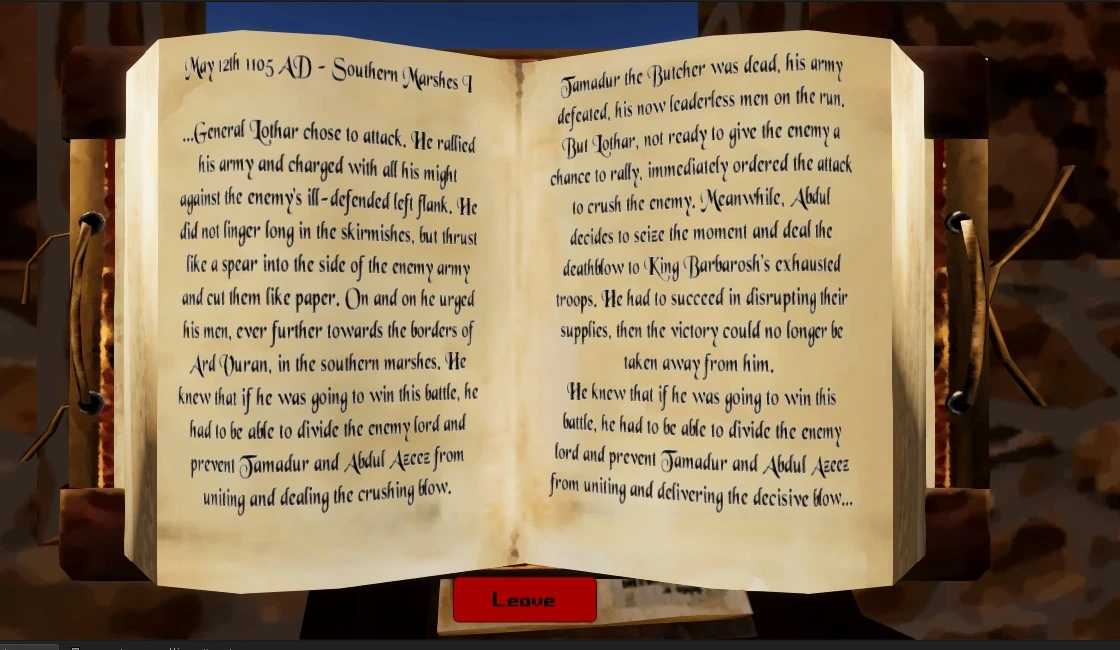 May 12th 1105 AD - Southern Marshes I
...General Lothar chose to attack. He rallied
his army and charged with all his might
against the enemy's ill-defended left flank. He
did not linger long in the skirmishes, but thrust
like a spear into the side of the enemy army
and cut them like paper. On and on he urged
his men, ever further towards the borders of
Ard Vuran, in the southern marshes. He
knew that if he was going to win this battle, he
had to be able to divide the enemy lord and
prevent Tamadur and Abdul Azeez from
uniting and dealing the crushing blow.
Tamadur the Butcher was dead, his army
defeated, his now leaderless men on the run.
But Lothar, not ready to give the enemy a
chance to rally, immediately ordered the attack
to crush the enemy. Meanwhile, Abdul
decides to seize the moment and deal the
deathblow to King Barbarosh's exhausted
troops. He had to succeed in disrupting their
supplies, then the victory could no longer be
taken away from him.
He knew that if he was going to win this
battle, he had to be able to divide the enemy
lord and prevent Tamadur and Abdul Azeez
from uniting and delivering the decisive blow...
Leave